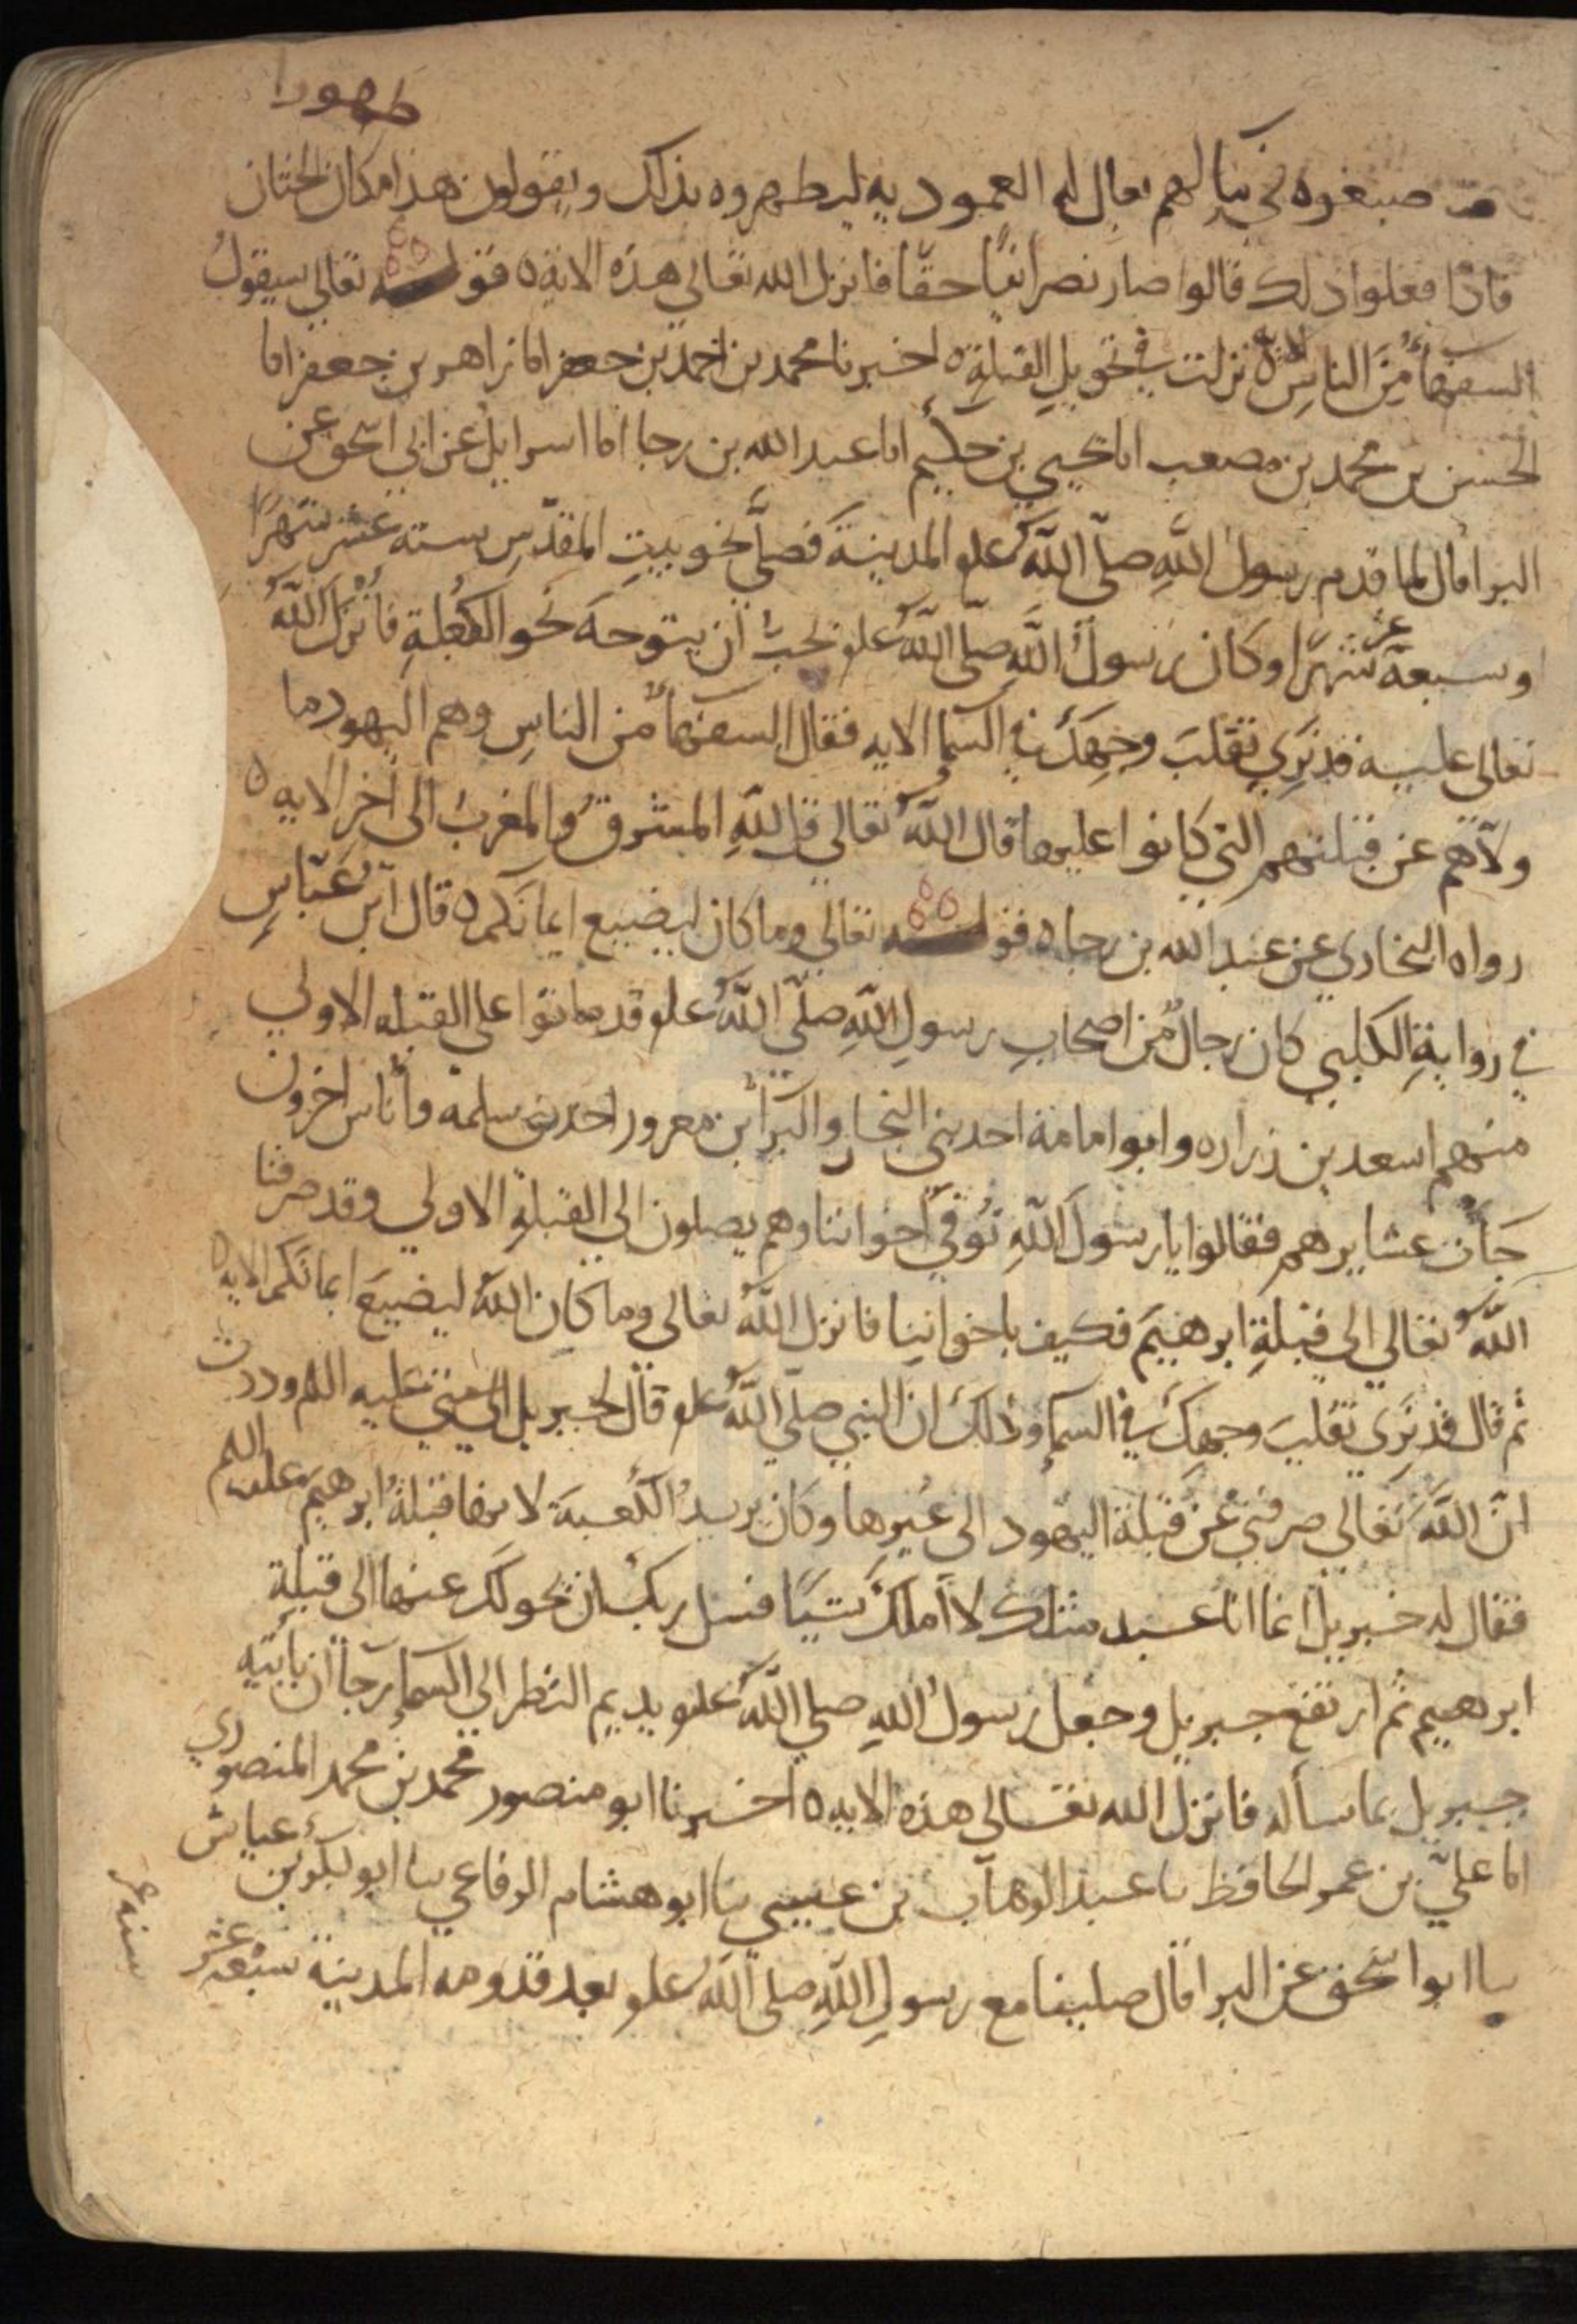 طهورا
صبغوه في ما لهم يقال له العمودية ليطهروه بذلك ويقولون هذا مكان الختان
فاذا فعلوا ذلك قالوا صار نصرانيا حقا فانزل الله تعالى هذه الاية ه قوله تعالي سيقول
السفهاء من الناس الاية نزلت في تحويل القبلة ه اخبرنا محمد بن احمد بن جعفر انا زاهر بن جعفر انا
الحسن بن محمد بن مصعب انا يحيي بن حكيم انا عبد الله بن رجا انا اسرايل عن ابي اسحق عن
البرا قال لما قدم رسول الله صلى الله علو المدينة فصلى نحو بيت المقدس ستة عشر شهرا
او سبعة عشر شهرا وكان رسول الله صلى الله علو يحب ان يتوجه نحو الكعبة فانزل الله
تعالى عليه قد نري تقلب وجهك في السما الايه فقال السفهاء من الناس وهم اليهود ما
ولاهم عن قبلتهم التي كانوا عليها قال الله تعالي قل لله المشرق والمغرب الى اخر الايه ه
رواه البخاري عن عبد الله بن رجا ه قوله تعالى وما كان ليضيع ايمانكم ه قال ابن عباس
في رواية الكلبي كان رجال من اصحاب رسول الله صلى الله علو قد ماتوا على القبله الاولي
منهم اسعد بن زراره وابو امامة احد بني النجار والبرا بن معرور احد بني سلمه وأناس اخرون
جأت عشايرهم فقالوا يا رسول الله توفي اخواننا وهم يصلون الى القبلة الاولي وقد صرفنا
الله تعالي الي قبلة ابرهيم فكيف باخواننا فانزل الله تعالى وما كان الله ليضيع ايمانكم الايه ه
ثم قال قد نري تقلب وجهك في السماء وذلك ان النبي صلي الله علو قال لجبريل عليه اللم وددت
ان الله تعالي صرفني عن قبلة اليهود الى غيرها وكان يريد الكعبة لانها قبلة ابرهيم علىه اللم
فقال له جبريل انما انا عبد مثلك لا أملك شيئا فسل ربك ان يحولك عنها الى قبلة
ابرهيم ثم ارتفع جبريل وجعل رسول الله صلي الله علو يديم النظر الي السماء رجاا ان ياتيه
جبريل بما سأله فانزل الله تعالى هذه الايه ه اخبرنا ابو منصور محمد بن محمد المنصوري
انا علي بن عمر الحافظ ىا عبد الوهاب بن عيسي ىا ابو هشام الرفاعي ىا ابو بكر بن عياش
ىا ابو اسحق عن البرا قال صلينا مع رسول الله صلى الله علو بعد قدومه المدينة سبعة عشر